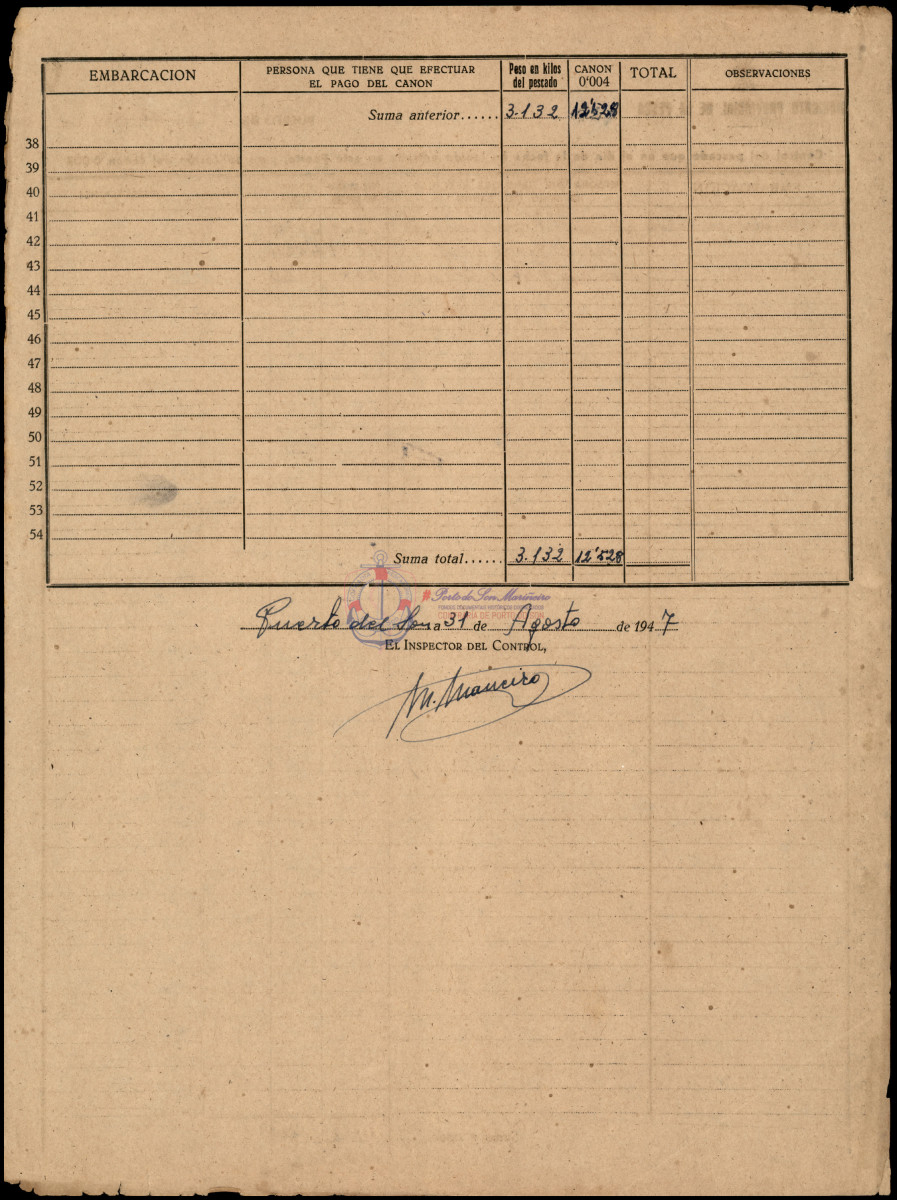 EMBARCACION PERSONA QUE TIENE QUE EFECTUAR EL PAGO DEL CANON Peso en kilos del pescado CANON 0'004 TOTAL OBSERVACIONES
Suma anterior...... 3.132 12'528
38
39
40
41
42
43
44
45
46
47
48
49
50
51
52
53
54
Suma total...... 3.132 12'528
Porto do Son Mariñeiro
Puerto del Son a 31 de Agosto de 1947
EL INSPECTOR DEL CONTROL,
M. Maneiro